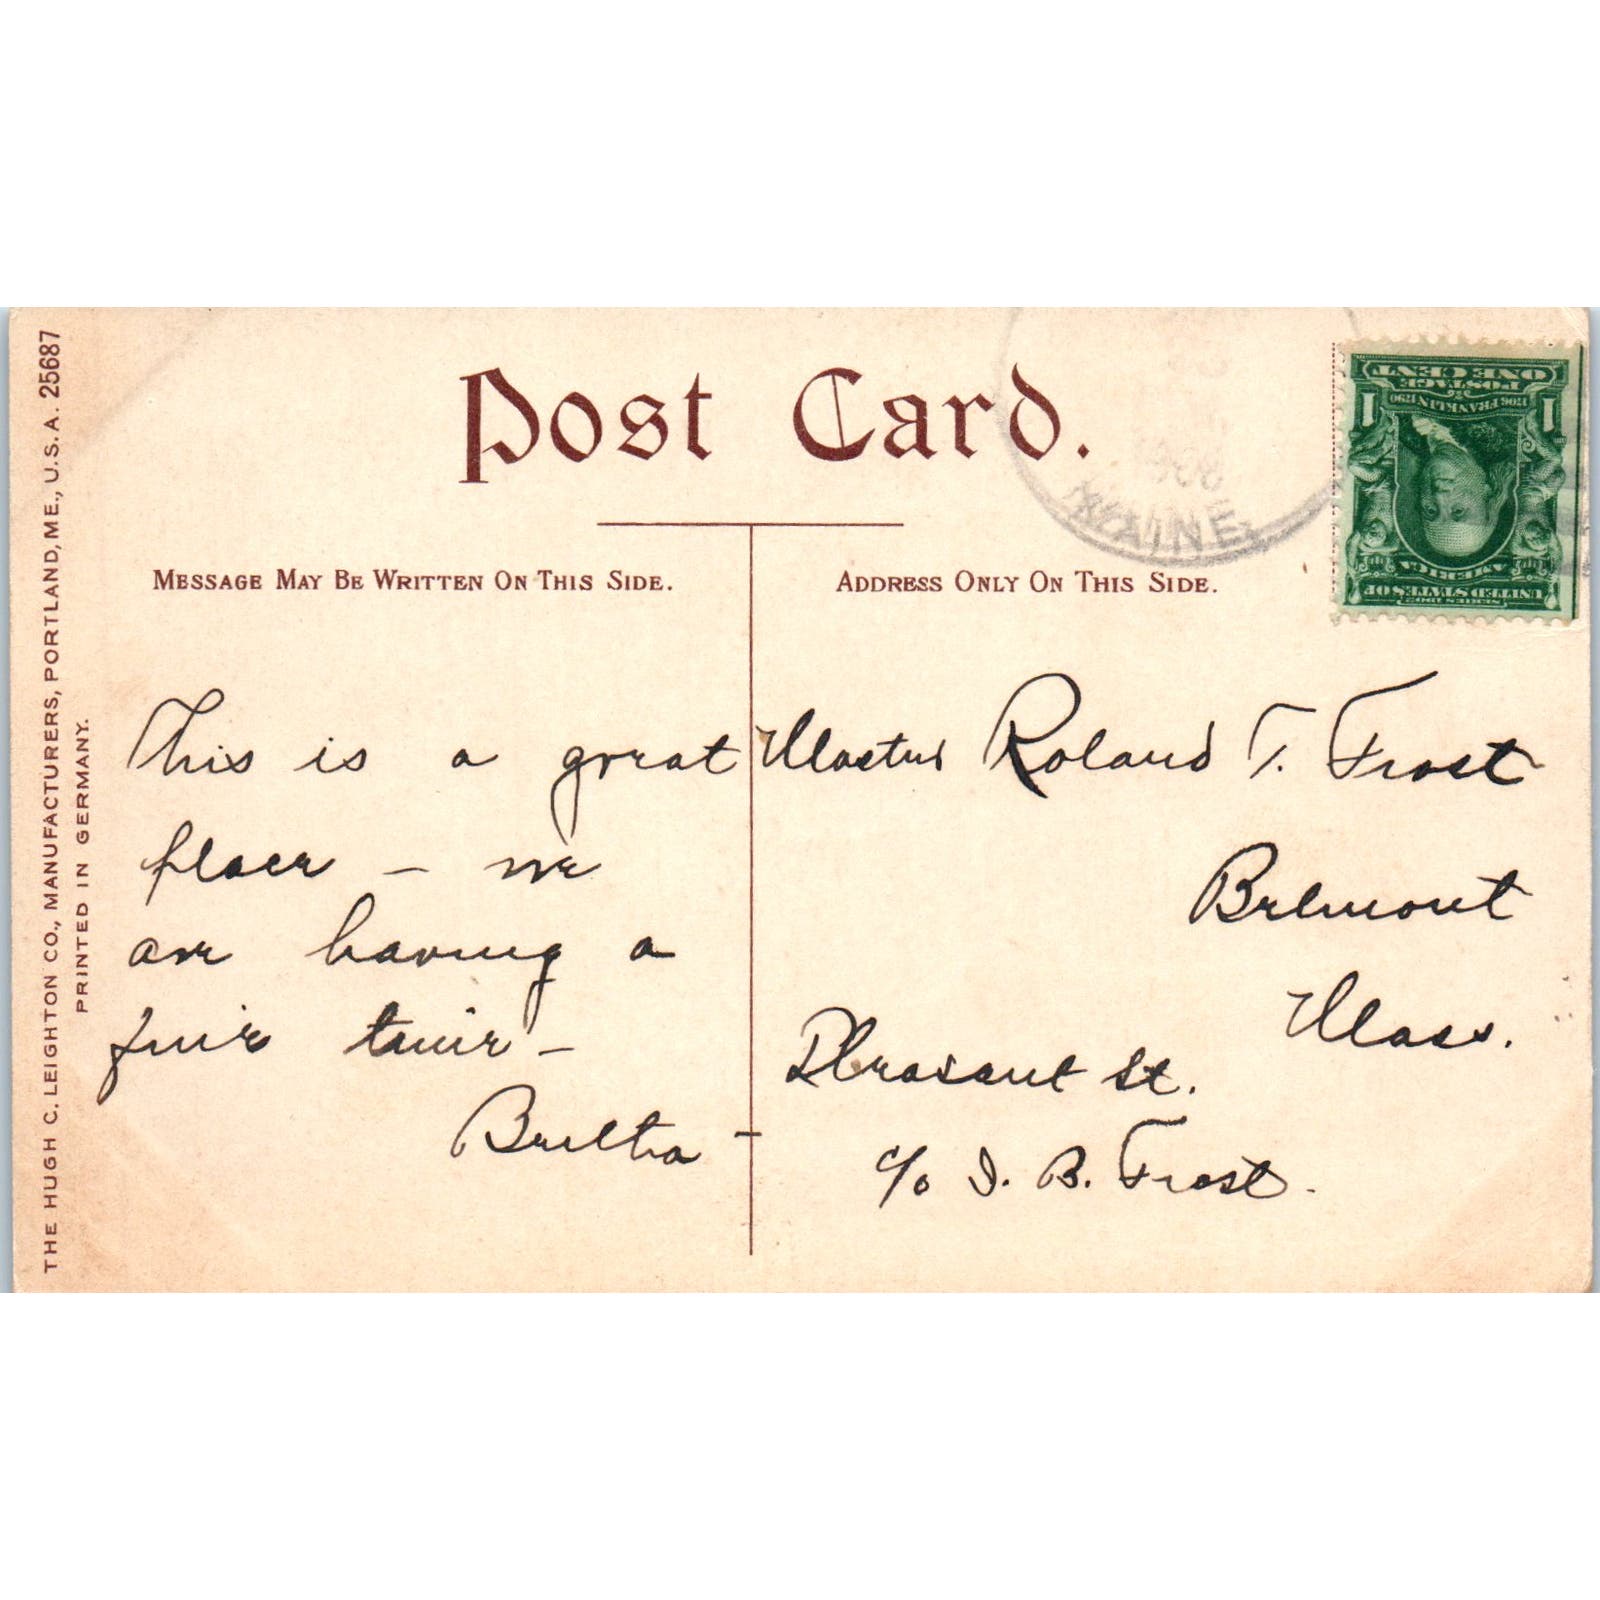 THE HUGH C. LEIGHTON CO., MANUFACTURERS, PORTLAND, ME., U.S.A. 25687
PRINTED IN GERMANY.
Post Card.
MESSAGE MAY BE WRITTEN ON THIS SIDE.
This is a great
place – we
are having a
fine time –
Bertha –
ADDRESS ONLY ON THIS SIDE.
1908
MAINE
ONE CENT
POSTAGE
1706 FRANKLIN 1790
1 1
UNITED STATES OF
AMERICA
SERIES 1902
Master Roland T. Frost
Belmont
Mass.
Pleasant St.
c/o I. B. Frost.